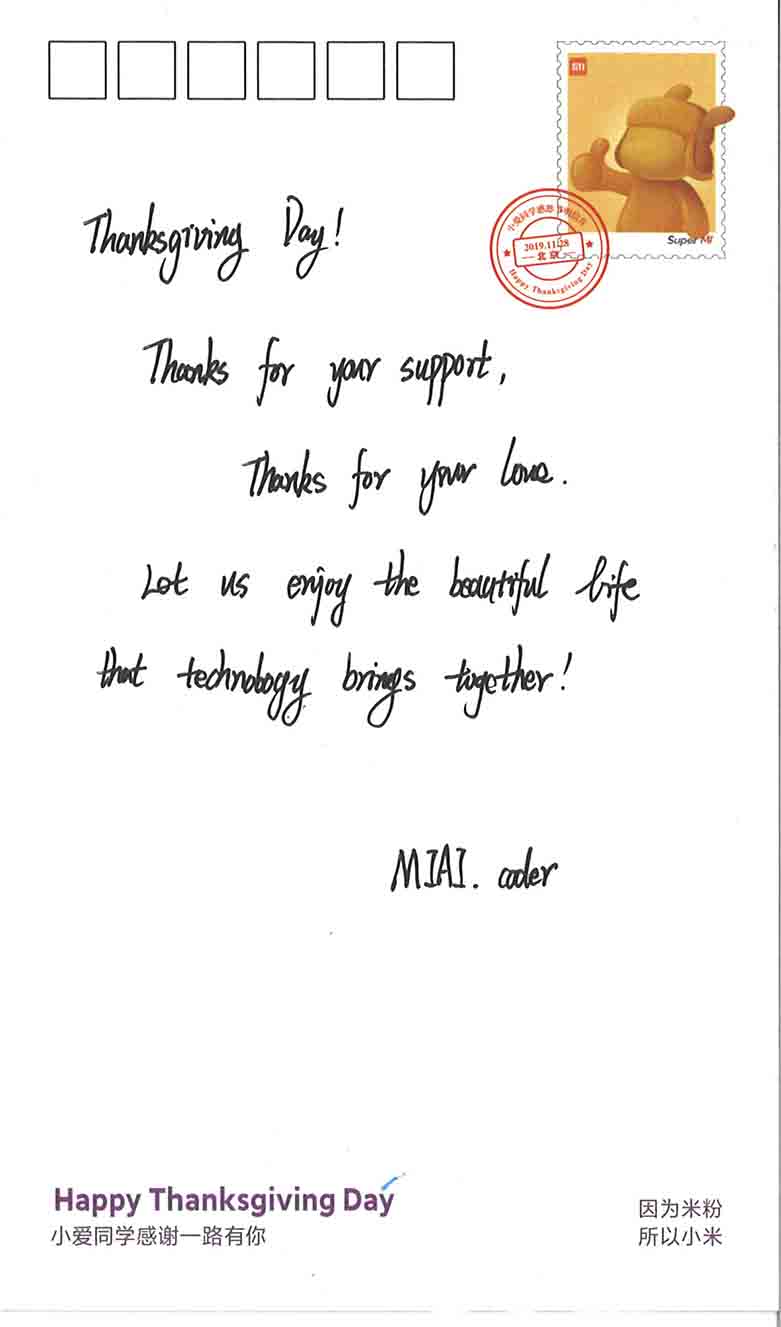 mi
Super MI
小爱同学感恩节明信片
2019.11.28
北京
Happy Thanksgiving Day
Thanksgiving Day!
Thanks for your support,
Thanks for your love.
Let us enjoy the beautiful life
that technology brings together!
MIAI. coder
Happy Thanksgiving Day
小爱同学感谢一路有你
因为米粉
所以小米